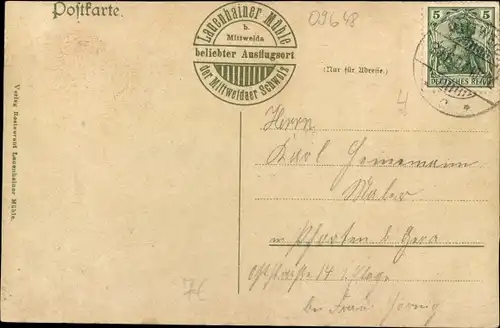 Postkarte.
Lauenhainer Mühle
b.
Mittweida
beliebter Ausflugsort
der Mittweidaer Schweiz
09648
5 5
DEUTSCHES REICH
(Nur für Adresse.)
Verlag Restaurant Lauenhainer Mühle.
Herrn
Karl Heinemann
Maler
in Pforten b Gera
14 I. Etage
bei Frau
7€